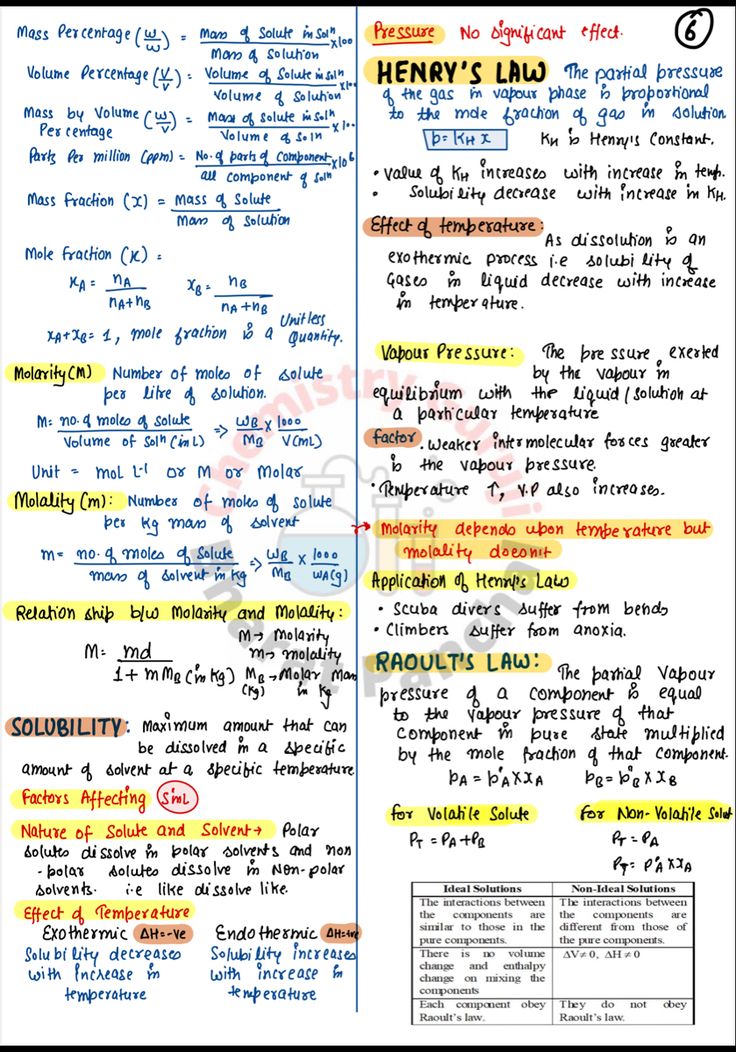 6
Mass Percentage (w/w) = Mass of Solute in Solⁿ / Mass of Solution ×100
Volume Percentage (V/V) = Volume of Solute in Solⁿ / Volume of Solution ×100
Mass by Volume (w/V) = Mass of Solute in Solⁿ / Volume of Solⁿ ×100
Percentage
Parts Per million (ppm) = No. of parts of Component / all component of Solⁿ ×10⁶
Mass Fraction (x) = Mass of Solute / Mass of Solution
Mole Fraction (x) =
xA = nA / nA+nB xB = nB / nA+nB
xA+xB = 1, mole fraction is a Unitless
Quantity.
Molarity (M) Number of moles of solute
per litre of solution.
M = no. of moles of solute / Volume of Solⁿ (in L) ⇒ WB/MB × 1000/V(mL)
Unit = mol L⁻¹ or M or Molar
Molality (m): Number of moles of solute
per kg mass of solvent
m = no. of moles of solute / mass of solvent in kg ⇒ WB/MB × 1000/WA(g)
Relation ship b/w Molarity and Molality:
M = md / 1+mMB (in kg)
M → Molarity
m → molality
MB → Molar Mass
(kg) in kg
SOLUBILITY: Maximum amount that can
be dissolved in a specific
amount of solvent at a specific temperature
Factors Affecting S in L
Nature of Solute and Solvent → Polar
solutes dissolve in polar solvents and non
-polar solutes dissolve in Non-polar
solvents. i.e like dissolve like.
Effect of Temperature
Exothermic ΔH=-ve Endothermic ΔH=+ve
Solubility decreases Solubility increases
with increase in with increase in
temperature temperature
Pressure No significant effect.
HENRY'S LAW The partial pressure
of the gas in vapour phase is proportional
to the mole fraction of gas in solution
p = KH x KH is Henry's Constant.
• Value of KH increases with increase in temp.
• Solubility decrease with increase in KH.
Effect of temperature:
As dissolution is an
exothermic process i.e solubility of
Gases in liquid decrease with increase
in temperature.
Vapour Pressure: The pressure exerted
by the vapour in
equilibrium with the liquid/solution at
a particular temperature
Factor • weaker intermolecular forces greater
is the vapour pressure.
• Temperature ↑, V.P also increases.
→ Molarity depends upon temperature but
molality doesn't
Application of Henry's Law
• Scuba divers suffer from bends
• Climbers suffer from anoxia.
RAOULT'S LAW: The partial Vapour
pressure of a component is equal
to the vapour pressure of that
component in pure state multiplied
by the mole fraction of that component.
pA = p°A × xA pB = p°B × xB
for Volatile Solute for Non-Volatile Solut
PT = PA + PB PT = PA
PT = P°A × xA
Ideal Solutions Non-Ideal Solutions
The interactions between The interactions between
the components are the components are
similar to those in the different from those of
pure components. the pure components.
There is no volume ΔV ≠ 0, ΔH ≠ 0
change and enthalpy
change on mixing the
components
Each component obey They do not obey
Raoult's law. Raoult's law.
Chemistry Guruji
Bharat Panchal